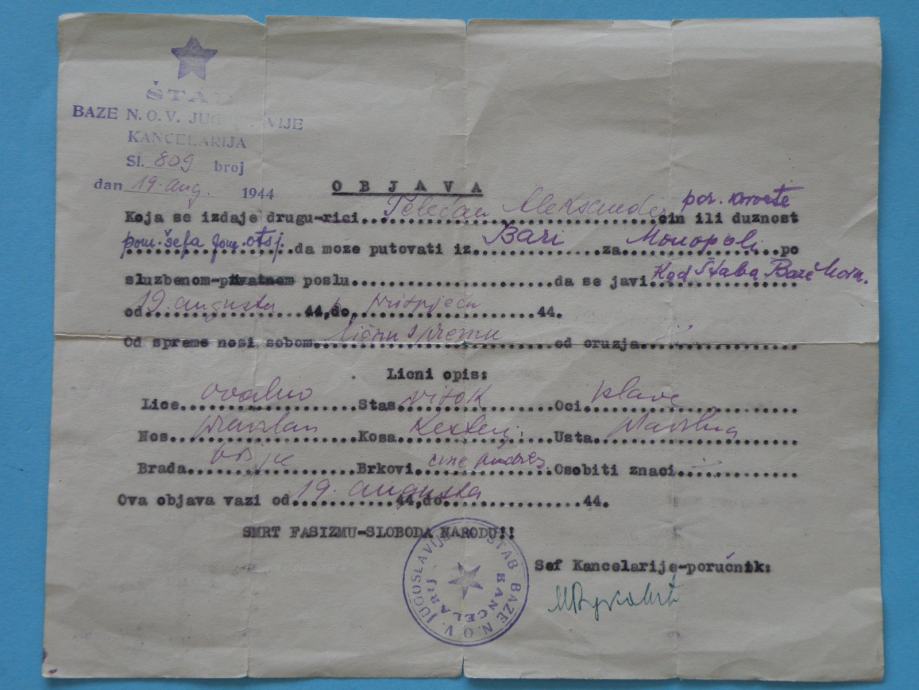 ŠTAB
BAZE N.O.V. JUGOSLAVIJE
KANCELARIJA
Sl. 809 broj
dan 19. aug. 1944
OBJAVA
Koja se izdaje drugu-rici... Aleksander por. čin ili duznost
pom. šefa ... otsj. da moze putovati iz Bari za Monopoli po
sluzbenom-privatnom poslu... da se javi Kod Štaba Baze
od 19. augusta 44, do ... 44.
Od spreme nosi sobom ličnu spremu od oruzja...
Licni opis:
Lice ovalno Stas visok Oci plave
Nos pravilan Kosa Usta pravilna
Brada brije Brkovi Osobiti znaci...
Ova objava vazi od 19. augusta 44, do... 44.
SMRT FASIZMU-SLOBODA NARODU!!
ŠTAB BAZE N.O.V. JUGOSLAVIJE
KANCELARIJA
Sef Kancelarije-poručnik: